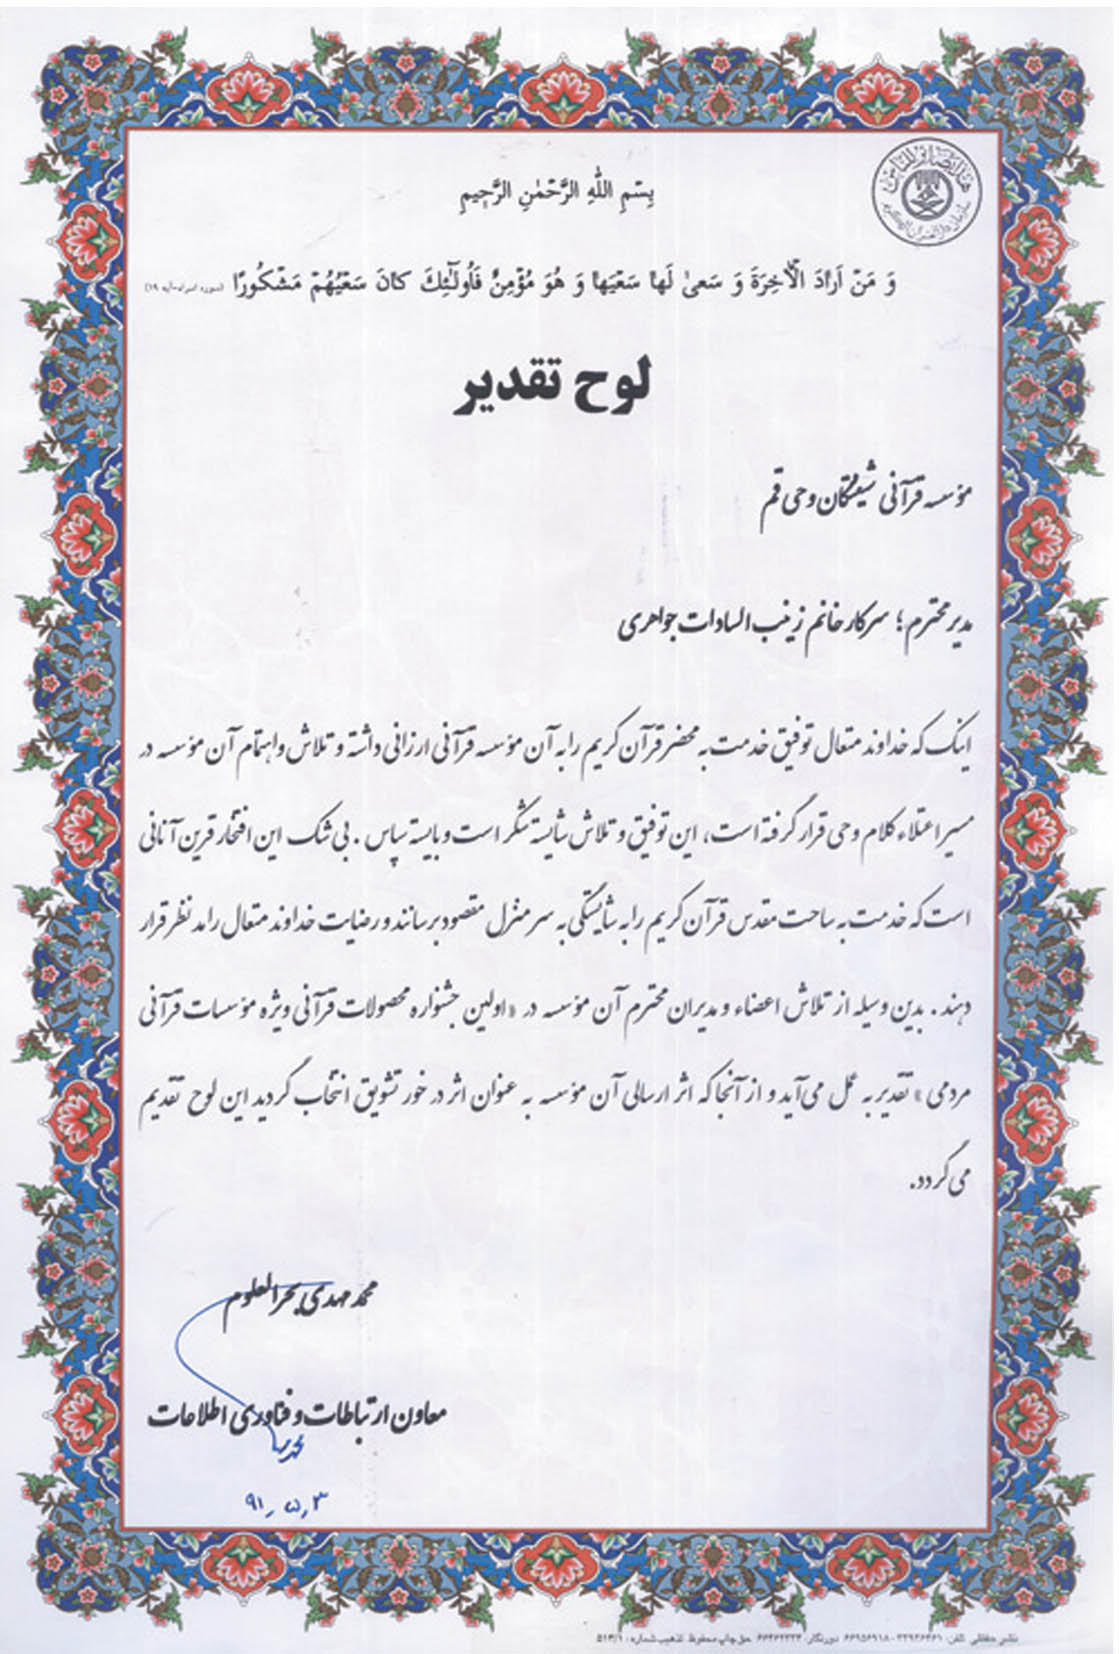 هذا بصائر للناس
سازمان دارالقرآن الکریم
بِسْمِ اللّٰهِ الرَّحْمٰنِ الرَّحِیمِ
وَ مَنْ اَرادَ الْآخِرَةَ وَ سَعیٰ لَها سَعْیَها وَ هُوَ مُؤْمِنٌ فَاُولٰٓئِكَ كانَ سَعْیُهُمْ مَشْكُورًا (سوره اسراء-آیه ۱۹)
لوح تقدیر
مؤسسه قرآنی شیفتگان وحی قم
مدیر محترم؛ سرکار خانم زینب السادات جواهری
اینک که خداوند متعال توفیق خدمت به محضر قرآن کریم را به آن مؤسسه قرآنی ارزانی داشته و تلاش و اهتمام آن مؤسسه در
مسیر اعتلاء کلام وحی قرار گرفته است، این توفیق و تلاش شایسته شکر است و بایسته سپاس. بی شک این افتخار قرین آنانی
است که خدمت به ساحت مقدس قرآن کریم را به شایستگی به سر منزل مقصود برسانند و رضایت خداوند متعال را مد نظر قرار
دهند. بدین وسیله از تلاش اعضاء و مدیران محترم آن مؤسسه در «اولین جشنواره محصولات قرآنی ویژه مؤسسات قرآنی
مردمی» تقدیر به عمل می آید و از آنجا که اثر ارسالی آن مؤسسه به عنوان اثر در خور تشویق انتخاب گردید این لوح تقدیم
می گردد.
محمد مهدی بحرالعلوم
معاون ارتباطات و فناوری اطلاعات
۹۱٫۵٫۳
نشر حفظی تلفن: ۳۳۹۳۶۴۶۱ - ۶۶۹۵۶۹۱۸ دورنگار: ۶۶۴۶۲۲۲۳ حق چاپ محفوظ تذهیب شماره: ۵۱۳/۱